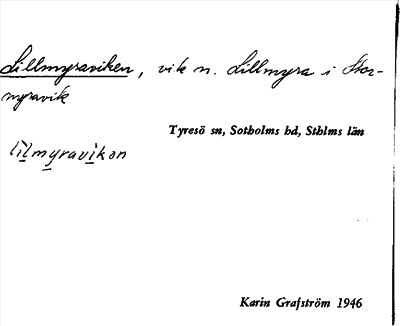 Lillmyraviken, vik n. Lillmyra i Stor-
myravik
Tyresö sn, Sotholms hd, Sthlms län
lilmyravikən
Karin Grafström 1946